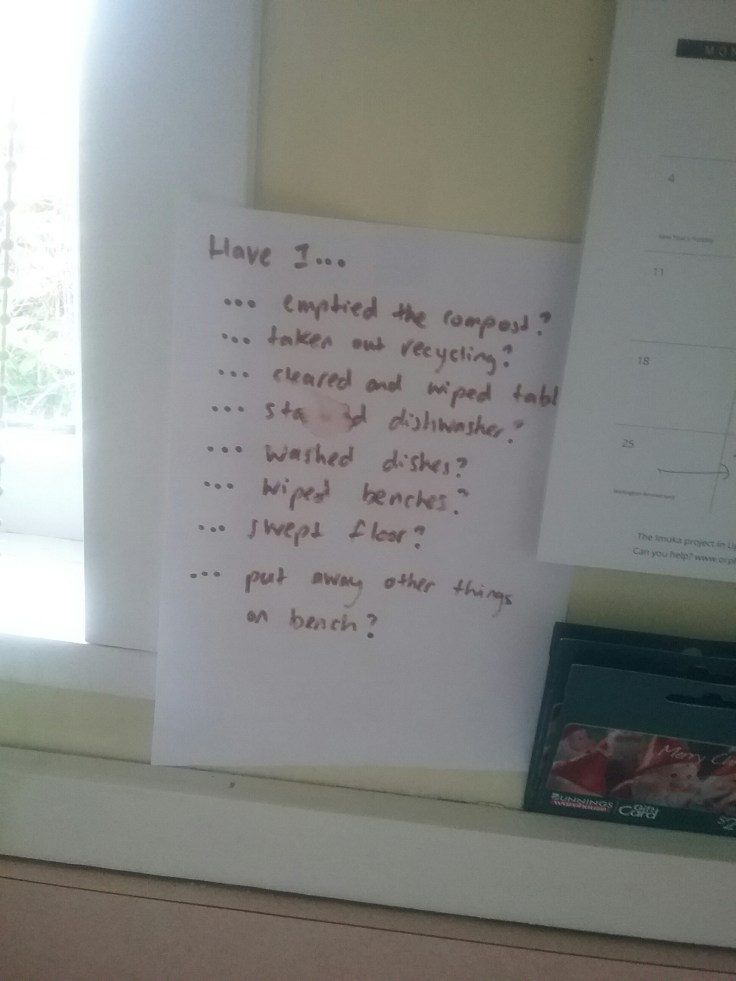 Have I...
... emptied the compost?
... taken out recycling?
... cleared and wiped tabl
... dishwasher?
... washed dishes?
... wiped benches?
... swept floor?
... put away other things
on bench?
MON
4
11
18
25
The Imuka project in
Can you help? www.orp
Merry C
BUNNINGS
warehouse
Gift
Card